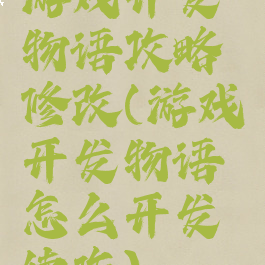 游戏开发
物语攻略
修改(游戏
开发物语
怎么开发